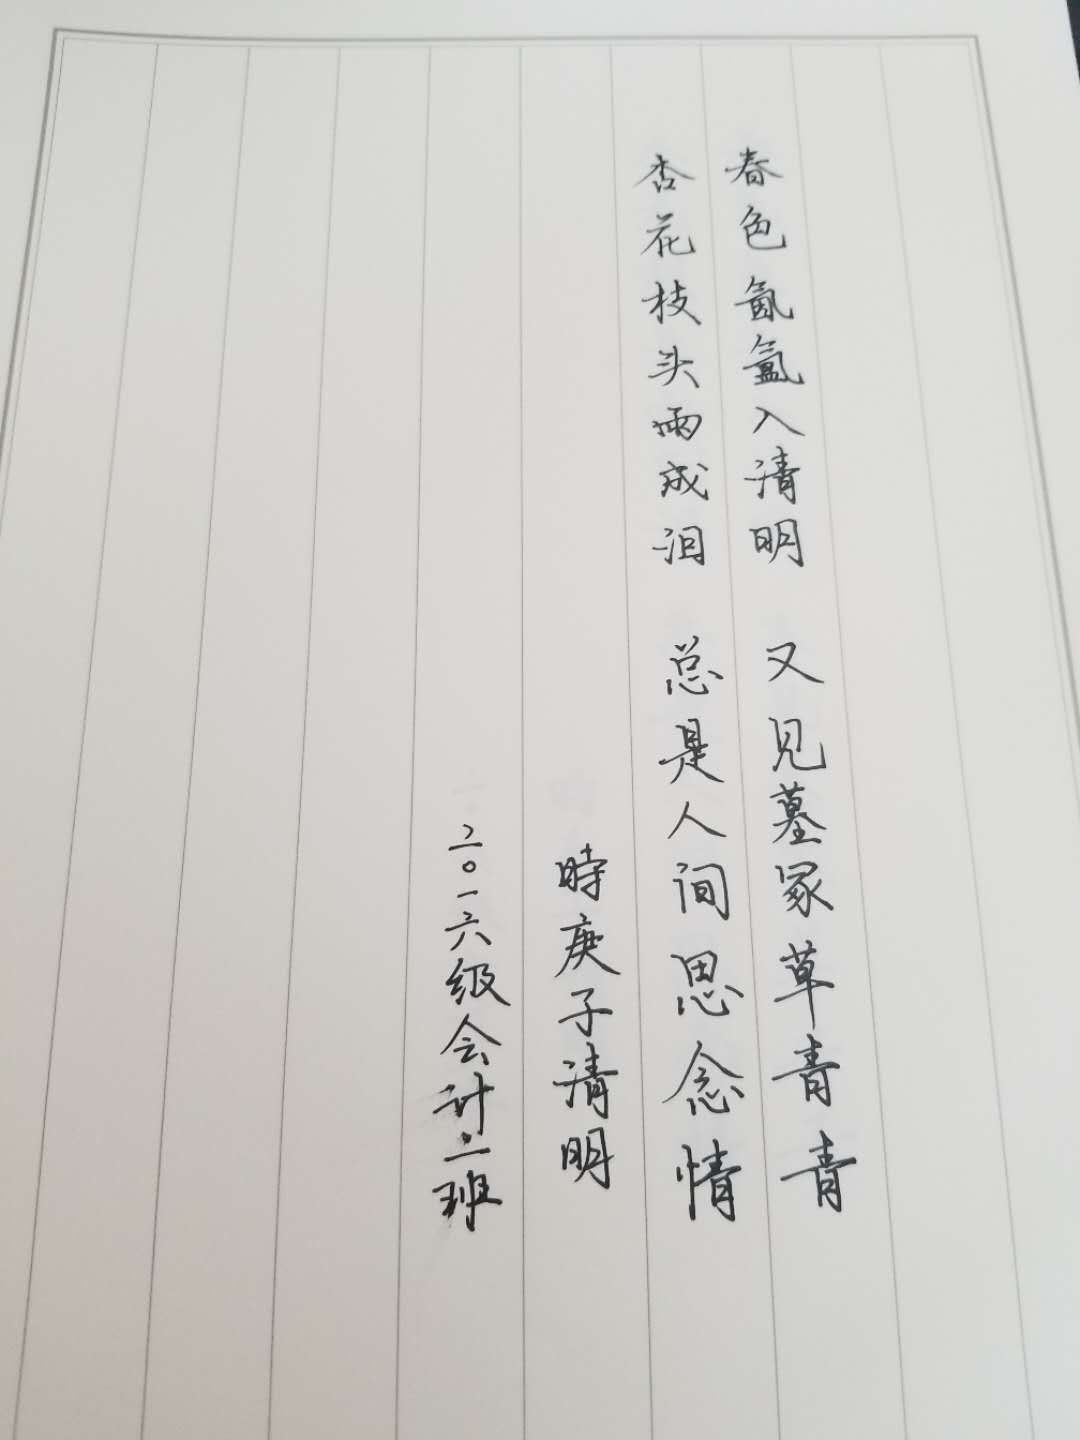 春色氤氲入清明 又见墓冢草青青
杏花枝头雨成泪 总是人间思念情
時庚子清明
二〇一六级会计二班